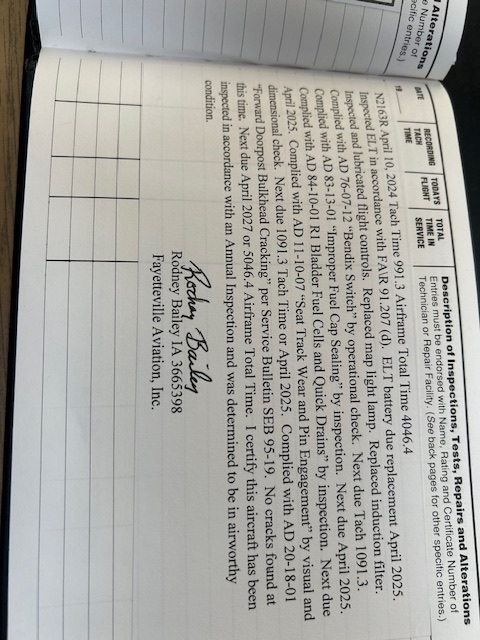 Alterations
e Number of
ecific entries.)
19
DATE
RECORDING
TACH
TIME
TODAYS
FLIGHT
TOTAL
TIME IN
SERVICE
Description of Inspections, Tests, Repairs and Alterations
Entries must be endorsed with Name, Rating and Certificate Number of
Technician or Repair Facility. (See back pages for other specific entries.)
N2163R April 10, 2024 Tach Time 991.3 Airframe Total Time 4046.4
Inspected ELT in accordance with FA\R 91.207 (d). ELT battery due replacement April 2025.
Inspected and lubricated flight controls. Replaced map light lamp. Replaced induction filter.
Complied with AD 76-07-12 "Bendix Switch" by operational check. Next due Tach 1091.3.
Complied with AD 83-13-01 "Improper Fuel Cap Sealing" by inspection. Next due April 2025.
Complied with AD 84-10-01 R1 Bladder Fuel Cells and Quick Drains" by inspection. Next due
April 2025. Complied with AD 11-10-07 "Seat Track Wear and Pin Engagement" by visual and
dimensional check. Next due 1091.3 Tach Time or April 2025. Complied with AD 20-18-01
"Forward Doorpost Bulkhead Cracking" per Service Bulletin SEB 95-19. No cracks found at
this time. Next due April 2027 or 5046.4 Airframe Total Time. I certify this aircraft has been
inspected in accordance with an Annual Inspection and was determined to be in airworthy
condition.
Rodney Bailey
Rodney Bailey IA 3665398
Fayetteville Aviation, Inc.